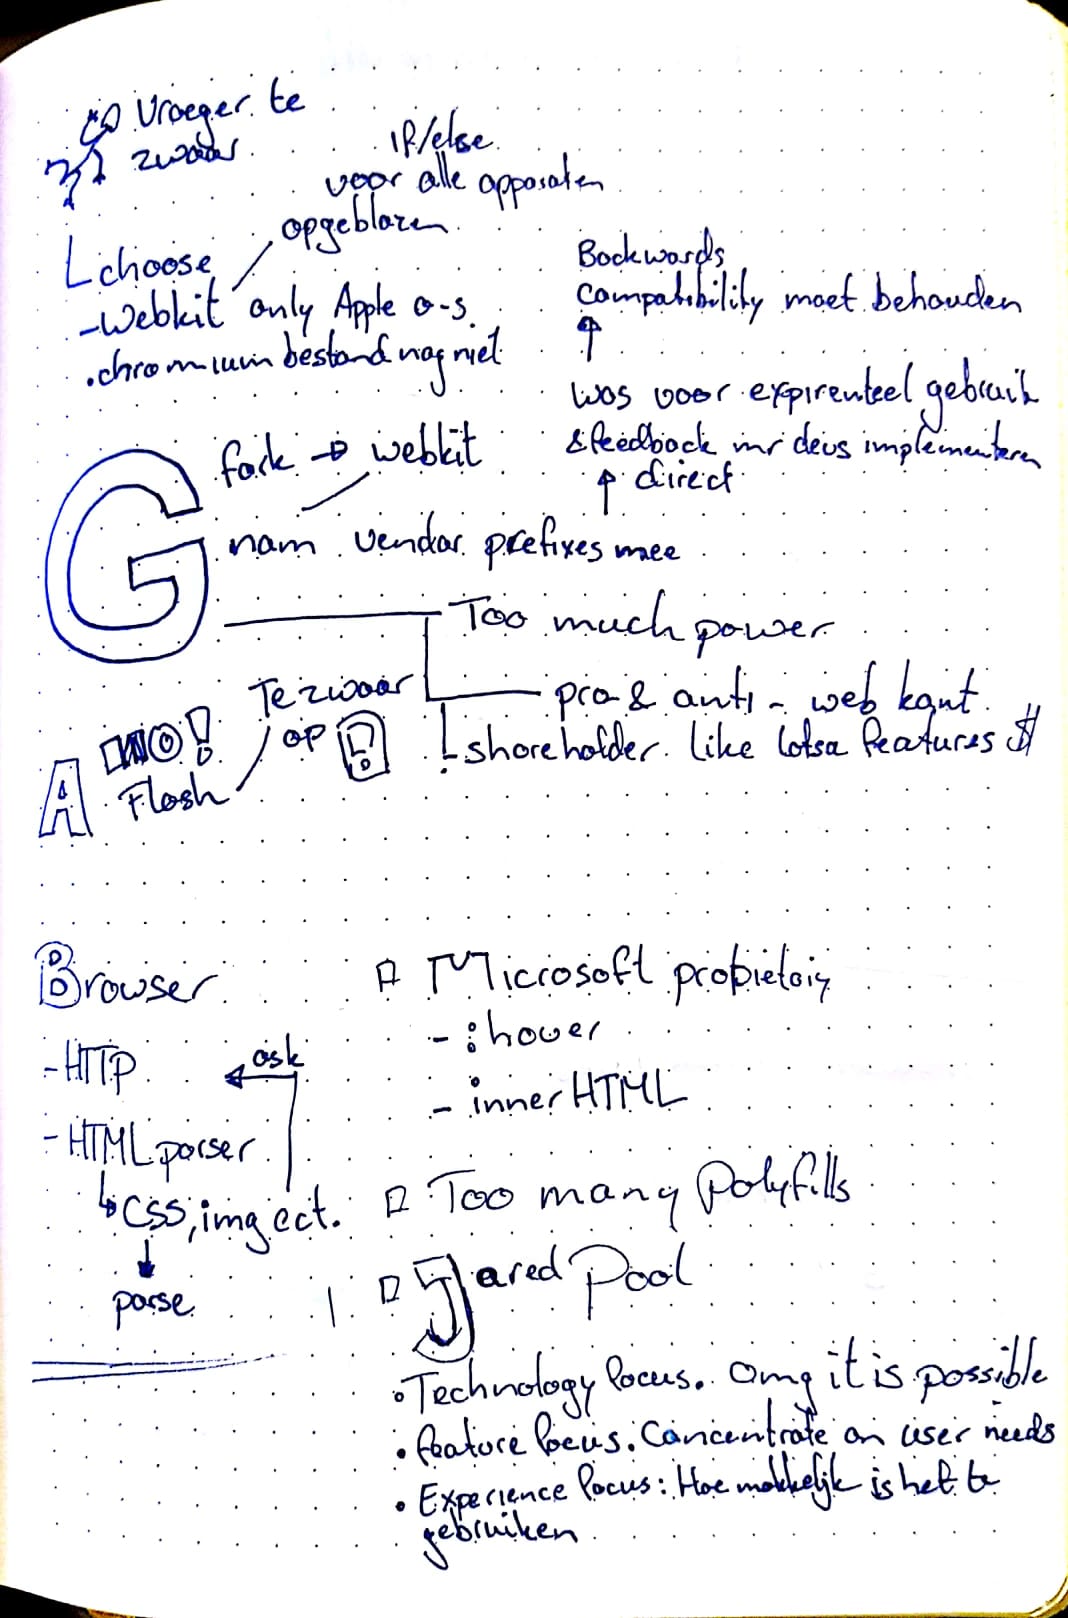 Vroeger te
zwaar
if/else
voor alle apparaten
opgeblazen
choose
-Webkit only Apple o-s.
.chromium bestand nog niet
Backwards
compatibility moet behouden
was voor expirenteel gebruik
& feedback devs implementeren
direct
fork → webkit
G
nam vendor prefixes mee
Too much power
pro- & anti - web kant
shareholder like lotsa features $
Te zwaar
op
NO!
A Flash
Browser
-HTTP
ask
-HTML parser
↳ CSS, img ect.
↓
parse
Microsoft
- :hover
- innerHTML
Too many polyfills
Jared Pool
• Technology focus. Omg it is possible
• feature focus. Concentrate on user needs
• Experience focus: Hoe makkelijk is het te
gebruiken